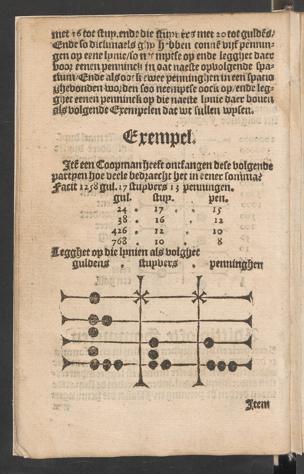 met 16 tot stup. ende die stupvers met 20 tot guldēs/
Ende so dicmaels ghy hebben connē vijf pennin-
gen op eene lynie/so neemptse op ende legghet daer
voor eenen penninck in dat naeste opvolgende spa-
tium/Ende alsoock twee penninghen in een spacio
ghevonden worden soo neemptse oock op/ende leg-
ghet eenen penninck op die naeste lynie daer boven
als volgende Exempelen dat wt sullen wysen.
Exempel.
Itē een Coopman heeft ontfangen dese volgende
partyen hoe veele bedraecht het in eener somma?
Facit 1258 gul. 17 stupvers 13 penningen.
gul. stup. pen.
24 . 17 . 15
38 . 16 . 12
426 . 12 . 10
768 . 10 . 8
Legghet op die lynien als volghet
guldens , stupvers . penninghen
Item